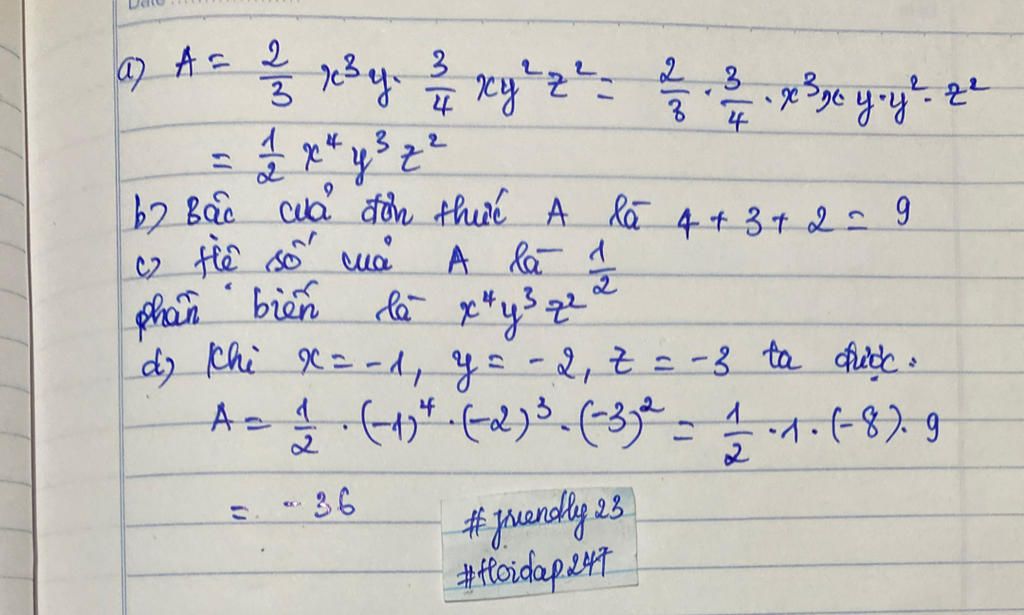 Date
a) A = 2/3 x³y · 3/4 xy²z² = 2/3 · 3/4 · x³x y·y² · z²
= 1/2 x⁴y³z²
b) Bậc của đơn thức A là 4 + 3 + 2 = 9
c) Hệ số của A là 1/2
phần biến là x⁴y³z²
d) Khi x = -1, y = -2, z = -3 ta được:
A = 1/2 · (-1)⁴ · (-2)³ · (-3)² = 1/2 · 1 · (-8) · 9
= -36
#friendly23
#Hoidap247